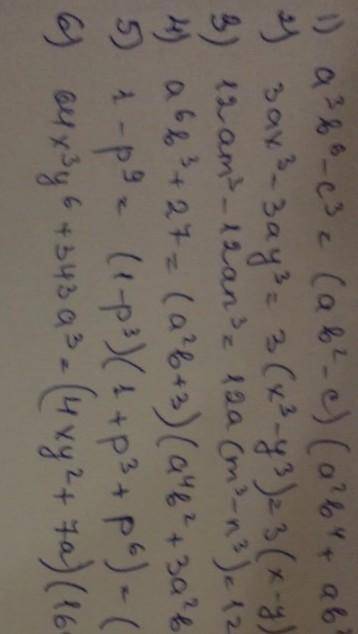 1) a³b⁶-c³ = (ab²-c)(a²b⁴+ab²
2) 3ax³-3ay³ = 3(x³-y³) = 3(x-y)
3) 12am³-12an³ = 12a(m³-n³) = 12
4) a⁶b³+27 = (a²b+3)(a⁴b²+3a²b
5) 1-p⁹ = (1-p³)(1+p³+p⁶) = (
6) 64x³y⁶+343a³ = (4xy²+7a)(16